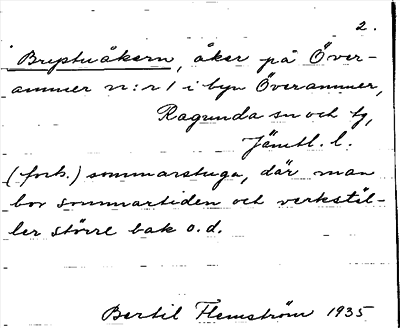 2.
Breptuåkern, åker på Över-
ammer nr:r 1 i byn Överammer,
Ragunda sn och tg,
Jämtl. l.
(fork.) sommarstuga, där man
bor sommartiden och verkstäl-
ler större bak o.d.
Bertil Flemström 1935